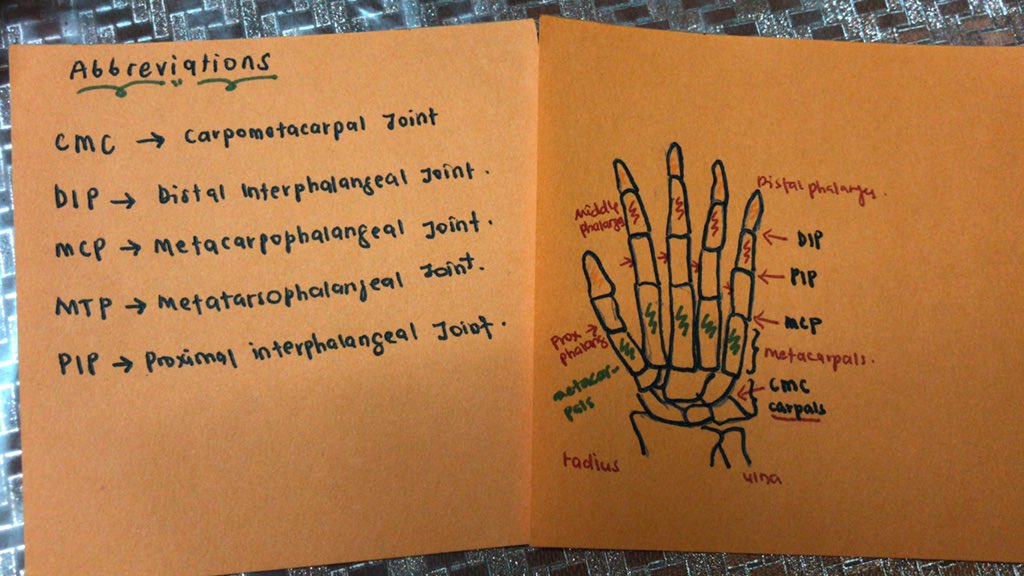 Abbreviations
CMC → Carpometacarpal Joint
DIP → Distal Interphalangeal Joint.
MCP → Metacarpophalangeal Joint.
MTP → Metatarsophalangeal Joint.
PIP → Proximal interphalangeal Joint.
Distal phalanges.
Middle
phalanges
DIP
PIP
MCP
Prox
phalang
metacarpals.
metacar-
pals
CMC
carpals
radius
ulna